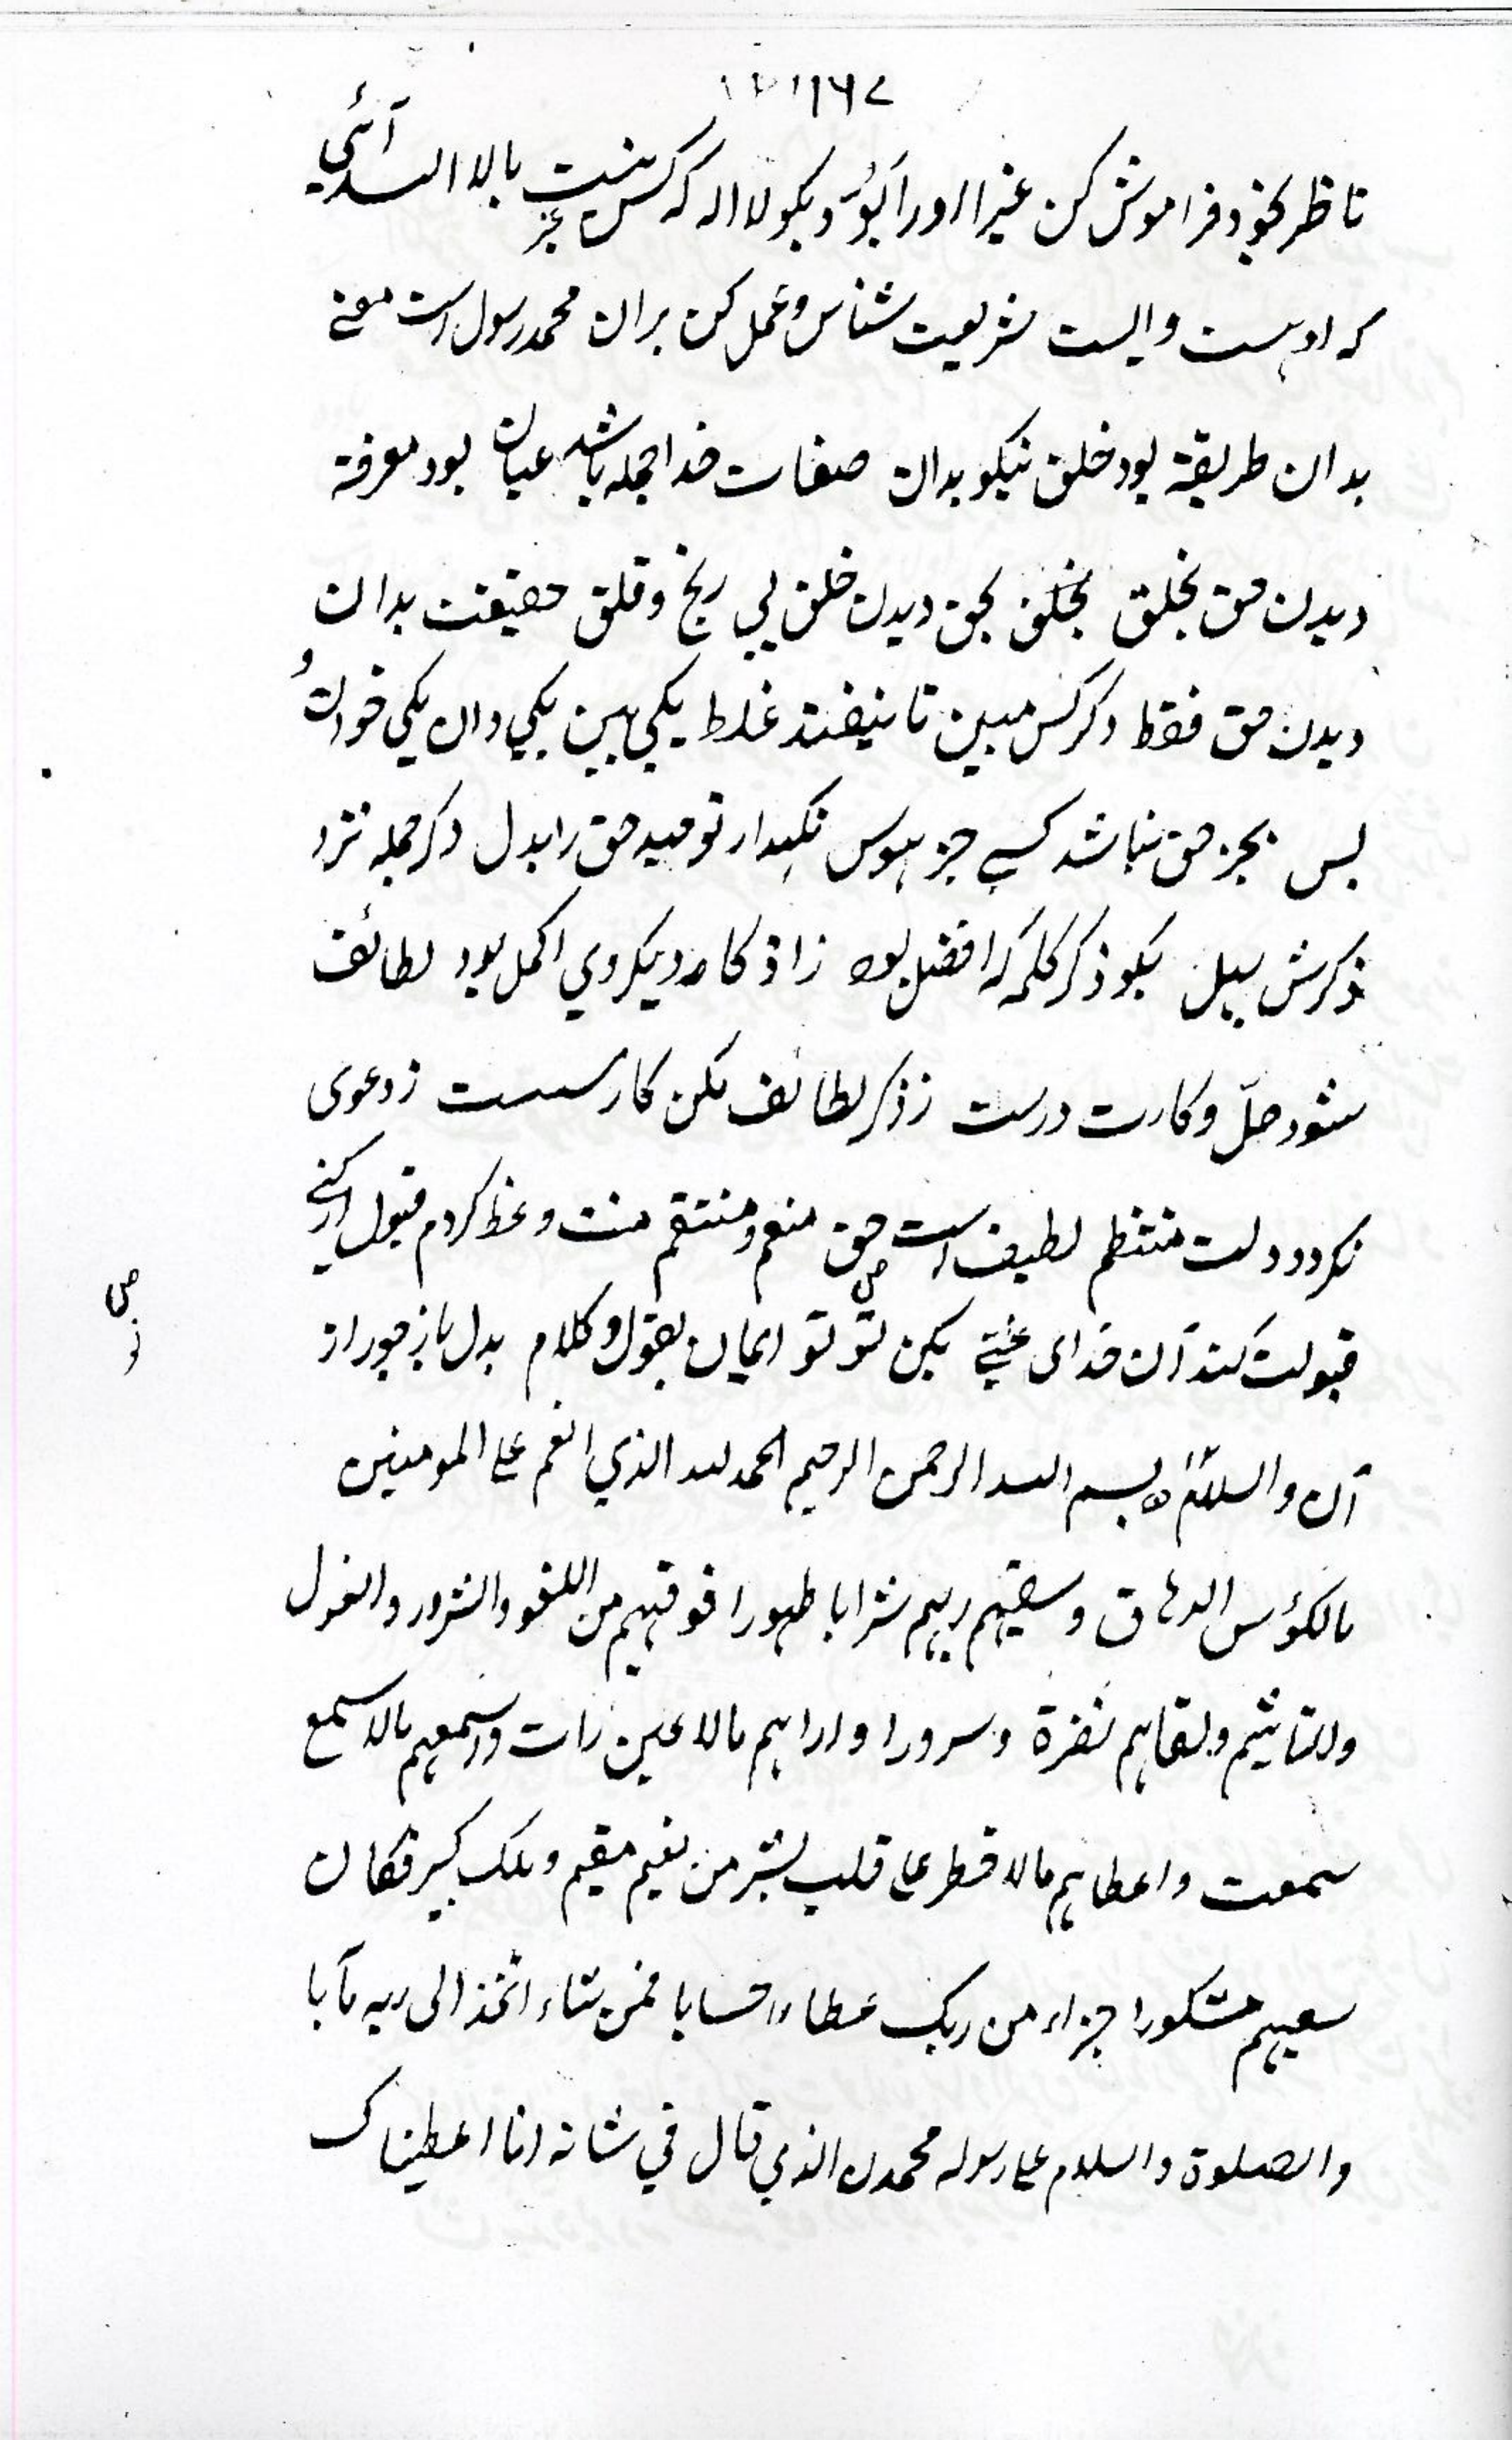 ۱۱۶۷
ناظر بخود فراموش کن غیر او را بگو و بگو لا اله که کس نیست غیر بالا الله آئی
که او هست و ایست شریعت شناس و عمل کن بران محمد رسول است معنے
بدان طریقة بود خلق نیکو بدان صفات خدا جمله باشد عیان بود معرفة
دیدن حق بخلق بخلق بحق دیدن خلق بی رنج و قلق حقیقت بدان
دیدن حق فقط دکر کس مبین تا نیفتد غلط یکی بین یکی دان یکی خوان و
بس بجز حق نباشد کسے جز هوس نکهدار توحید حق را بدل دکر جمله نزد
ذکرش بهل بکو ذکر کلمه که افضل بود زاذکار دیکر وی اکمل بود لطائف
شود حلّ و کارت درست زذکر لطائف مکن کار سست زدعوی
نکردد دلت منتظم لطیف است حق منعم و منتقم منت وعظ کردم قبول ار کنے
قبولت کند آن خدای غنے بکن تو تو ایمان بقول و کلام بدل باز جو راز
آن والسلام بسم الله الرحمن الرحیم الحمد لله الذی انعم علے المومنین
بالکؤس الدهاق و سقیهم ربهم شرابا طهورا فوقیهم من اللغو والشرور والغول
والتاثیم ولقاهم نضرة وسرورا واراهم مالا عین رات واسمعهم مالا سمع
سمعت واعطاهم مالا خطر علے قلب بشر من نعیم مقیم وملک کبیر فکان
سعیهم مشکورا جزاء من ربک عطاء حسابا فمن شاء اتخذ الی ربه مآبا
والصلوة والسلام علے رسوله محمدن الذی قال فی شانه انا اعطیناک